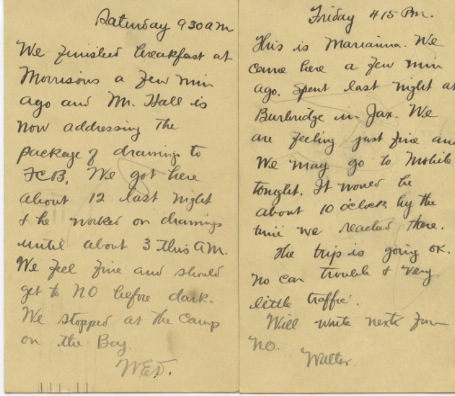 Saturday 930 am
We finished breakfast at
Morrisons a few min
ago and Mr. Hall is
now addressing the
package of drawings to
FCB. We got here
about 12 last night
& he worked on drawings
until about 3 this AM.
We feel fine and should
get to NO before dark.
We stopped at the Camp
on the Bay.
WEF.
Friday 415 Pm.
This is Marianna. We
came here a few min
ago. Spent last night at
Burbridge in Jax. We
are feeling just fine and
We may go to Mobile
tonight. It would be
about 10 oclock by the
time we reached there.
The trip is going ok.
no car trouble & very
little traffic.
Will write next from
NO.
Walter.